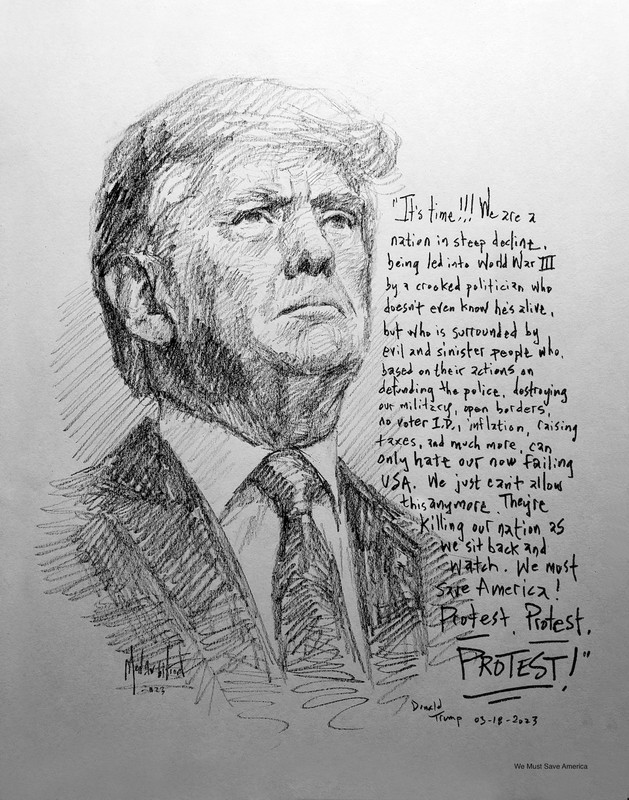 "It's time!!! We are a
nation in steep decline,
being led into World War III
by a crooked politician who
doesn't even know he's alive,
but who is surrounded by
evil and sinister people who,
based on their actions on
defunding the police, destroying
our military, open borders,
no voter I.D., inflation, raising
taxes, and much more, can
only hate our now failing
USA. We just can't allow
this anymore. They're
killing our nation as
we sit back and
watch. We must
save America!
Protest, Protest,
PROTEST!"
2023
Donald
Trump 03-18-2023
We Must Save America